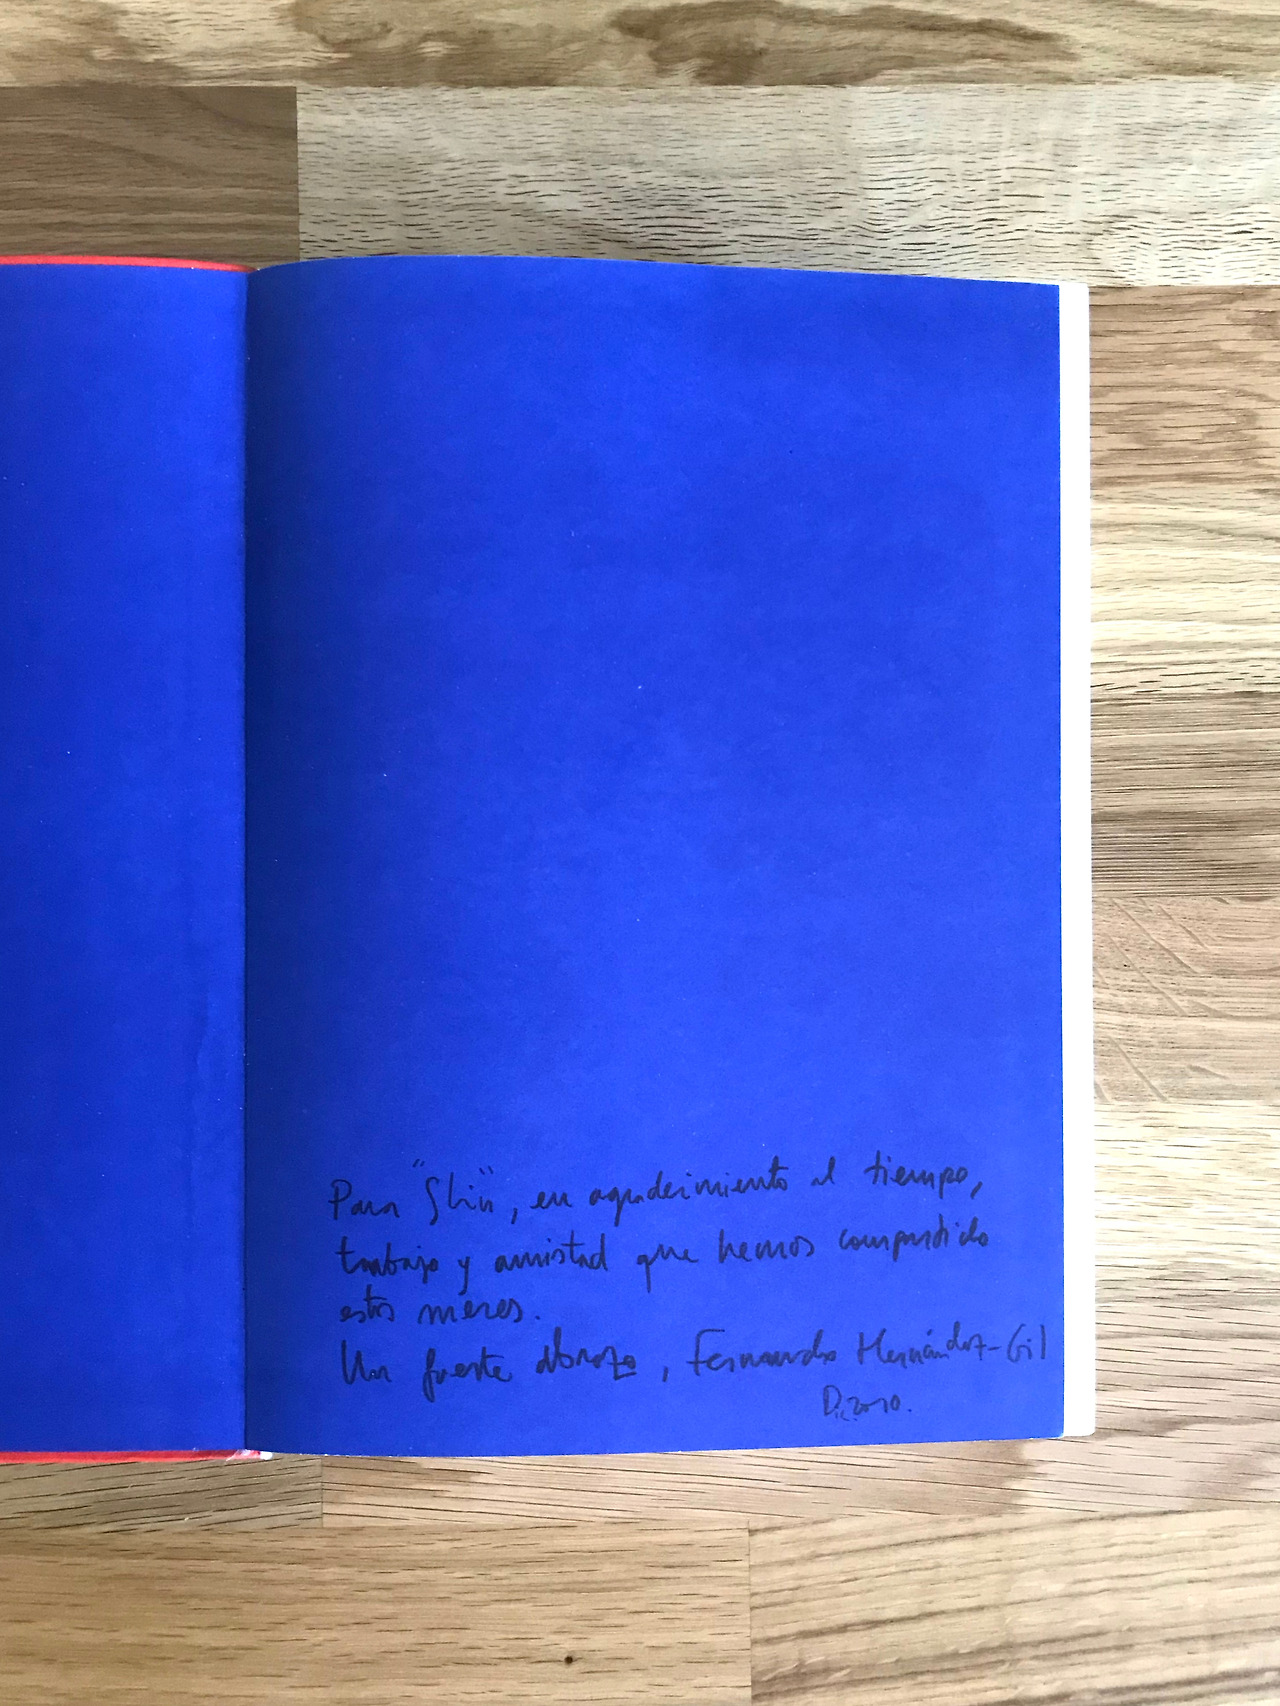 Para "Shin", en agradecimiento al tiempo,
trabajo y amistad que hemos compartido
estos meses.
Un fuerte abrazo, Fernando Hernández-Gil
Dic. 2010.